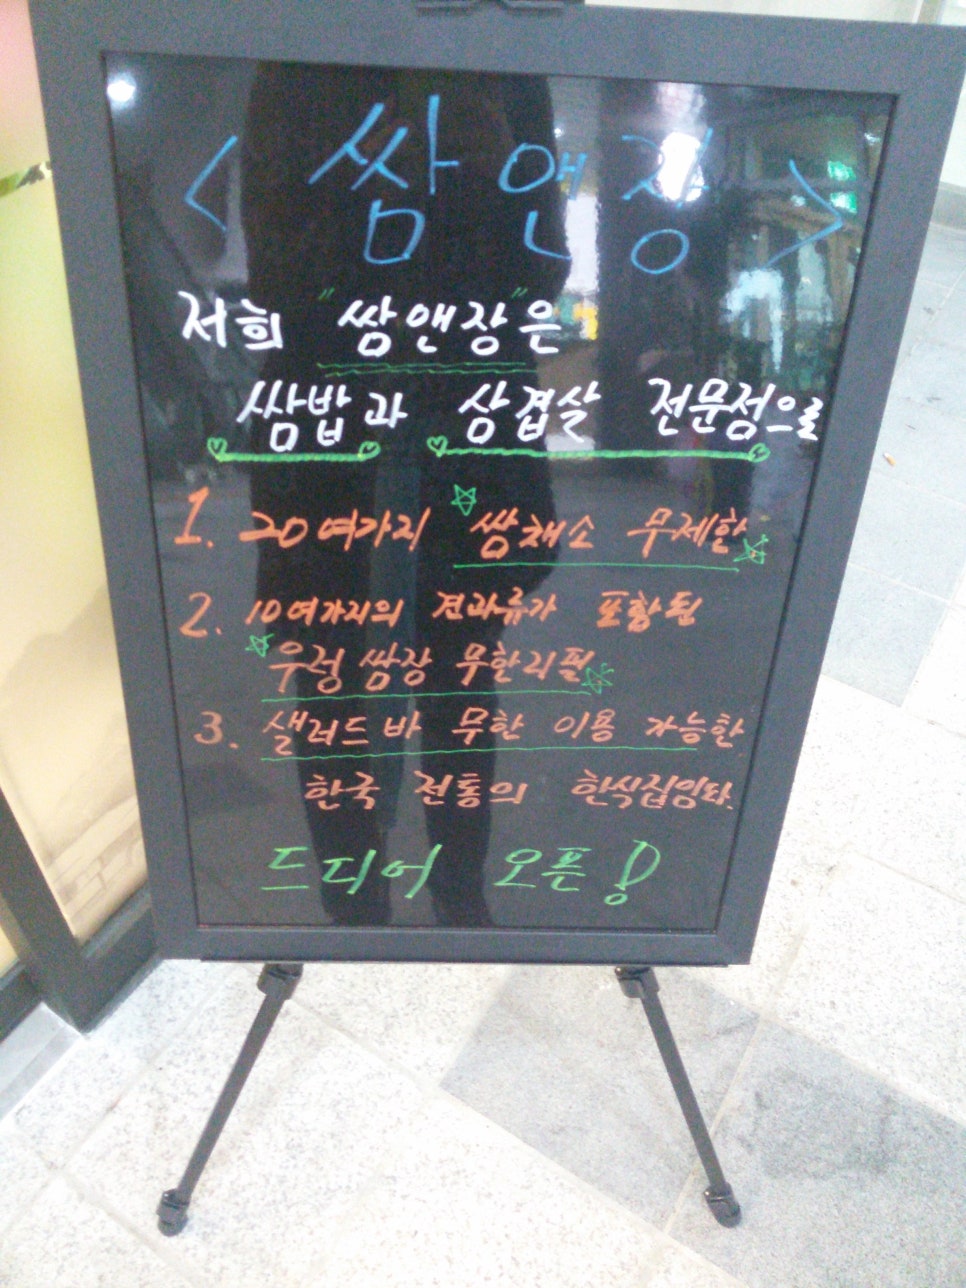 < 쌈 앤 장 >
저희 "쌈앤장"은
쌈밥과 삼겹살 전문점으로
1. 20여가지 쌈채소 무제한
2. 10여가지의 견과류가 포함된
우렁쌈장 무한리필
3. 샐러드바 무한 이용 가능한
한국 전통의 한식집입니다.
드디어 오픈!